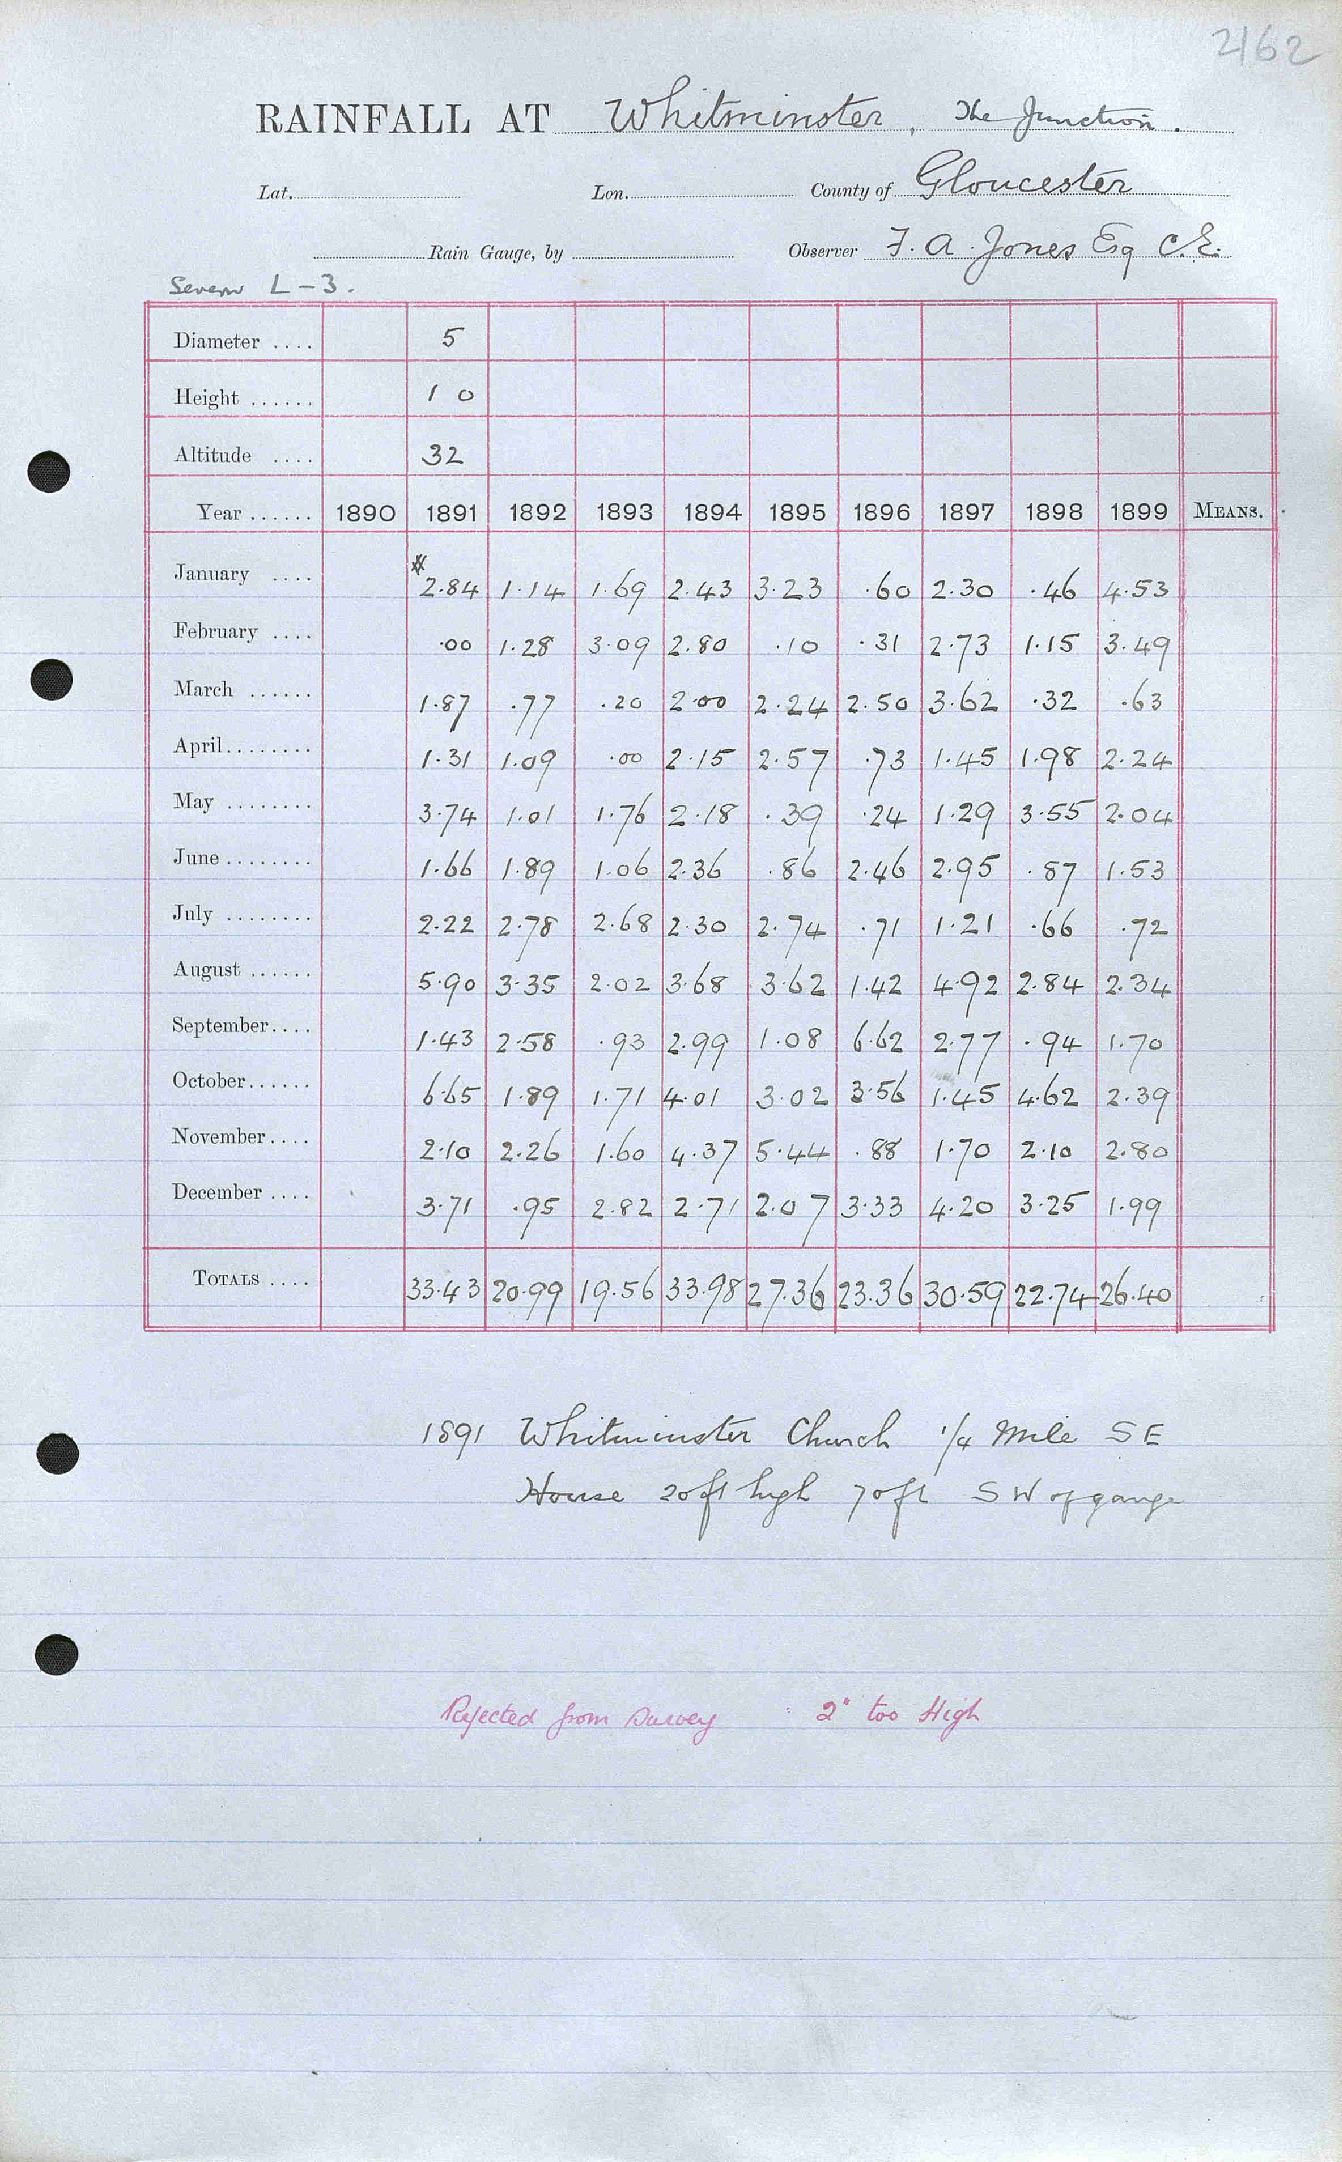 2162
RAINFALL AT Whitminster, The Junction.
Lat. Lon. County of Gloucester
Rain Gauge, by Observer F. A. Jones Esq C.E.
Severn L-3.
Diameter .... 5
Height ...... 1 0
Altitude .... 32
Year ...... 1890 1891 1892 1893 1894 1895 1896 1897 1898 1899 MEANS.
January .... * 2.84 1.14 1.69 2.43 3.23 .60 2.30 .46 4.53
February .... .00 1.28 3.09 2.80 .10 .31 2.73 1.15 3.49
March ...... 1.87 .77 .20 2.00 2.24 2.50 3.62 .32 .63
April........ 1.31 1.09 .00 2.15 2.57 .73 1.45 1.98 2.24
May ........ 3.74 1.01 1.76 2.18 .39 .24 1.29 3.55 2.04
June ........ 1.66 1.89 1.06 2.36 .86 2.46 2.95 .87 1.53
July ........ 2.22 2.78 2.68 2.30 2.74 .71 1.21 .66 .72
August ...... 5.90 3.35 2.02 3.68 3.62 1.42 4.92 2.84 2.34
September.... 1.43 2.58 .93 2.99 1.08 6.62 2.77 .94 1.70
October...... 6.65 1.89 1.71 4.01 3.02 3.56 1.45 4.62 2.39
November.... 2.10 2.26 1.60 4.37 5.44 .88 1.70 2.10 2.80
December .... 3.71 .95 2.82 2.71 2.07 3.33 4.20 3.25 1.99
TOTALS .... 33.43 20.99 19.56 33.98 27.36 23.36 30.59 22.74 26.40
1891 Whitminster Church 1/4 Mile SE
House 20ft high 70ft SW of gauge
Rejected from Survey 2" too High